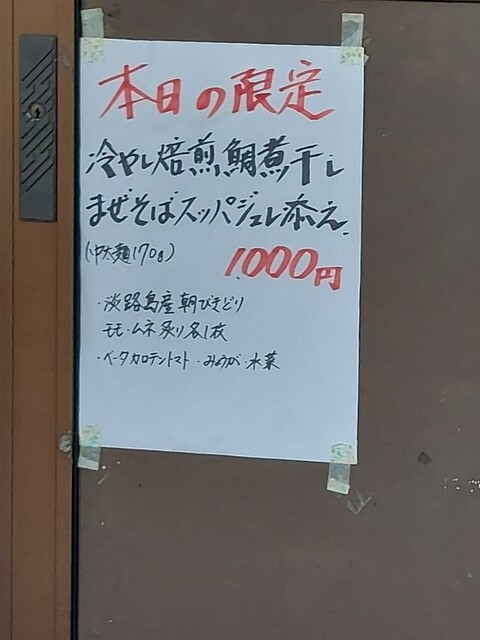 本日の限定
冷やし焙煎鯛煮干し
まぜそばスッパジュレ添え
(中太麺170g)
1000円
・淡路島産朝びきどり
モモ・ムネ炙り各1枚
・ベータカロテントマト・みょうが・水菜